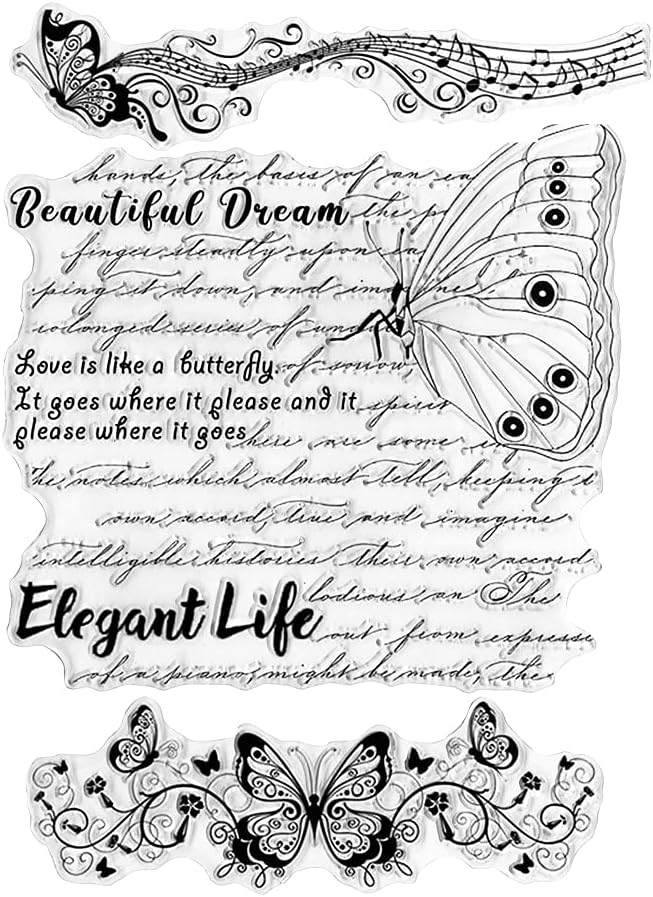 hands, the basis of an ea
Beautiful Dream the p
finger steadily upon sa
ping it down, and imagine
rodonged series of undul
Love is like a butterfly. of sorrow
It goes where it please and it spirit
please where it goes
there are some
the notes, which almost tell, keeping
own accord, true and imagine
intelligible histories their own accord
Elegant Life lodious an The
out from expresse
of a piano, might be made, the